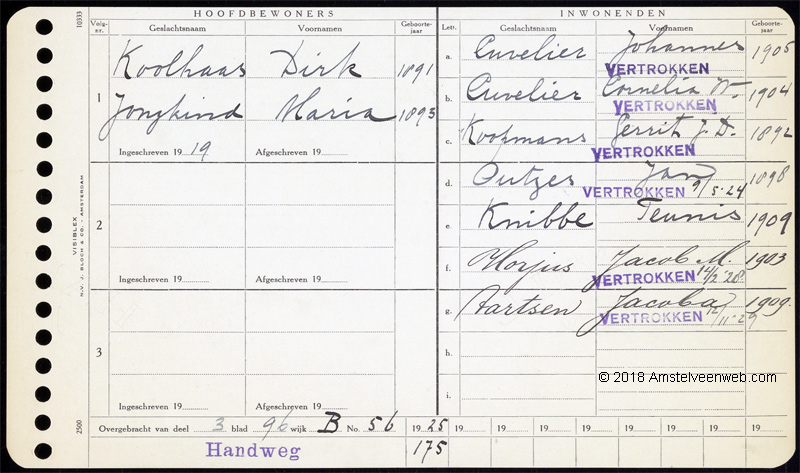 HOOFDBEWONERS
Volg-nr. Geslachtsnaam Voornamen Geboorte-jaar
1 Koolhaas Dirk 1891
Jongkind Maria 1893
Ingeschreven 19 19 Afgeschreven 19
2
Ingeschreven 19 Afgeschreven 19
3
Ingeschreven 19 Afgeschreven 19
INWONENDEN
Lett. Geslachtsnaam Voornamen Geboorte-jaar
a. Cuvelier Johannes 1905
VERTROKKEN
b. Cuvelier Cornelia W. 1904
VERTROKKEN
c. Koopmans Gerrit J. D. 1892
VERTROKKEN
d. Jan 1898
VERTROKKEN 9/5-24
e. Knibbe Teunis 1909
f. Horjus Jacob M. 1903
VERTROKKEN 14/2 '28
g. Aartsen Jacoba 1909
VERTROKKEN 12/11-29
h.
i.
Overgebracht van deel 3 blad 96 wijk B No. 56 19 25 19 19 19 19 19 19 19
Handweg 175
10333
VISIBLEX
N.V. J. BLOCH & CO. - AMSTERDAM
2500
© 2018 Amstelveenweb.com